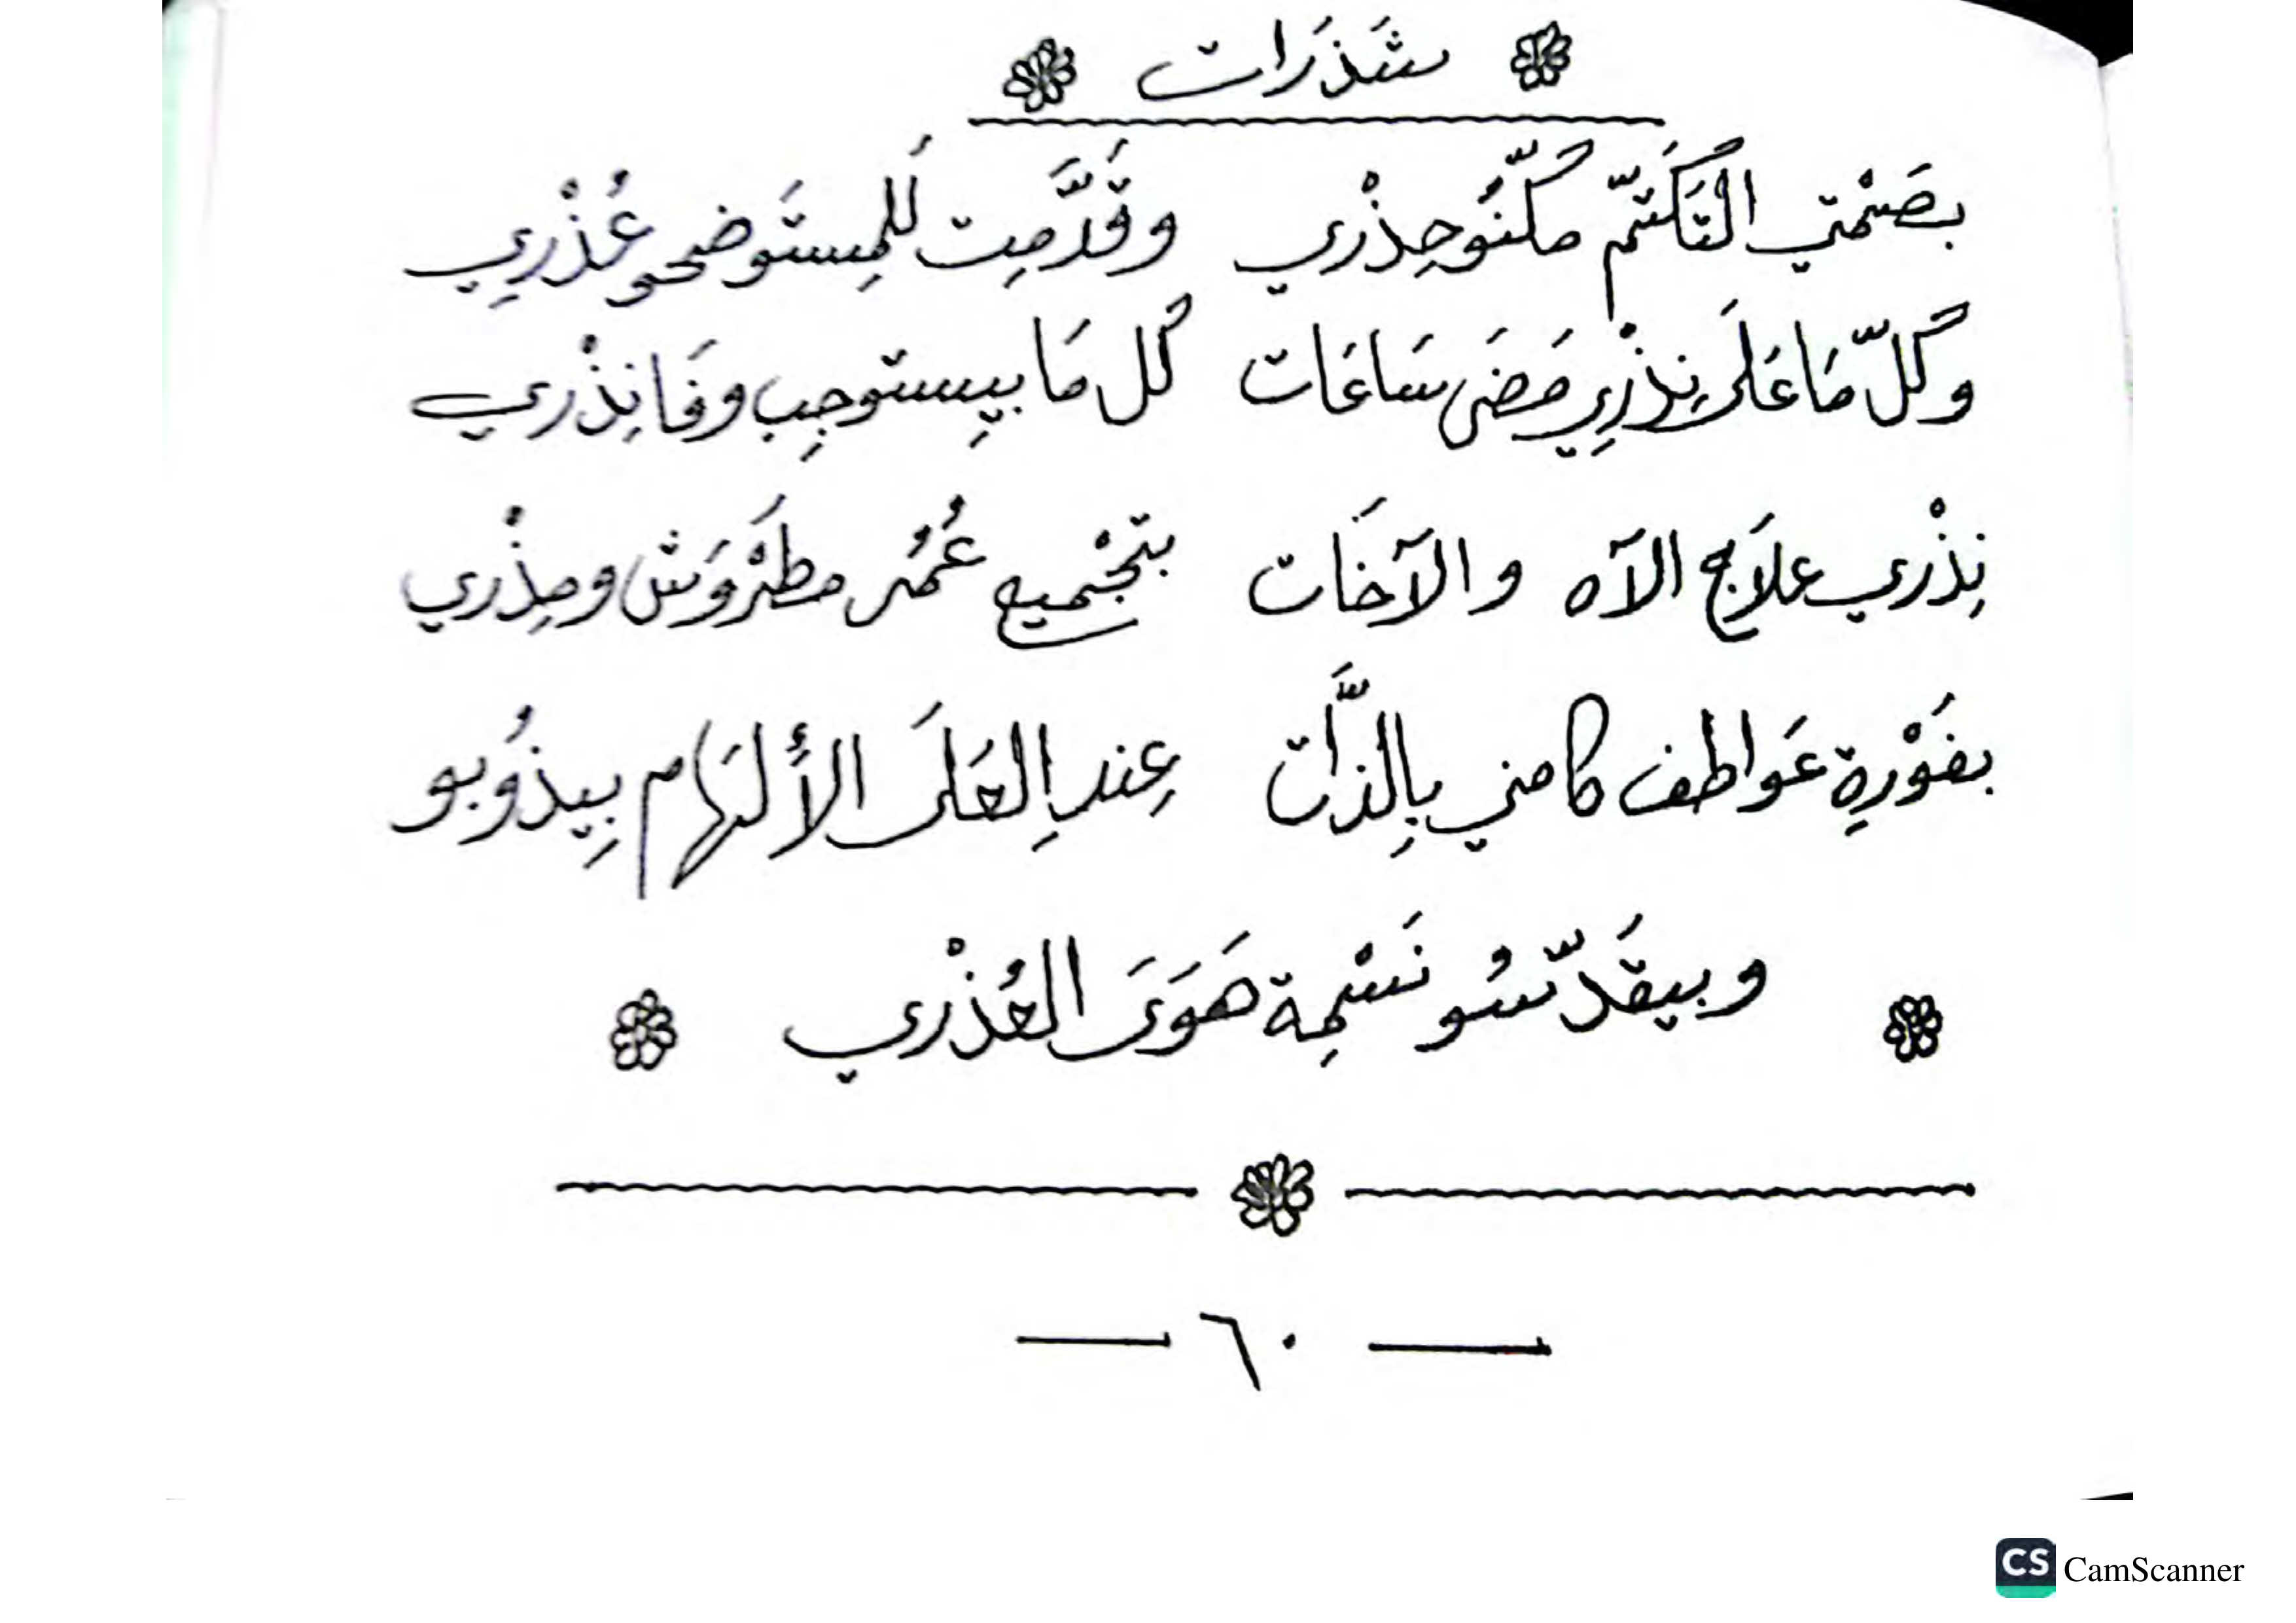 شَذَرَات
بصَمْتي التَكَتّم مكنّو حِذْري وقَدَّمِت لَلمِستَوضحو عُذْرِي
وكَلّ مَا عَلَى نِذْرِي مَضَى سَاعَات كَل مَا بيِستوجِب وفَا نِذْري
نِذْري علاَج الآه والآخَات بتجْميع عُمُر مطَرْوَش ومِذْري
بفَوْرةِ عَواطف كامني بِالذَّات عِند العَلَى الأَلهَام بِيذوُبو
وبيقَدّسُو نَسْمِة هَوَى العُذْري
— ٦٠ —
CS CamScanner